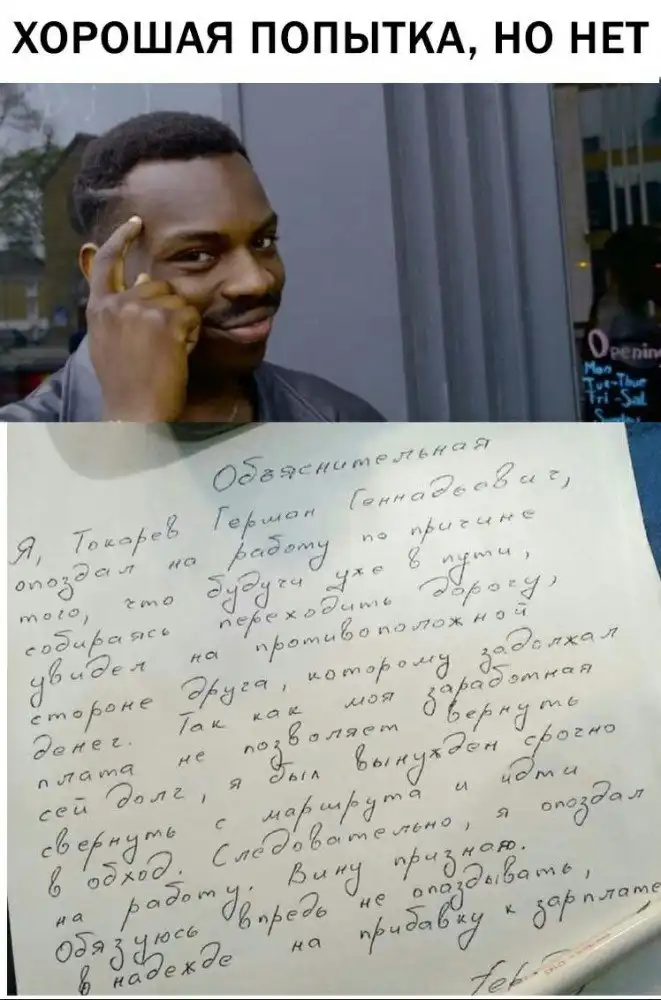 ХОРОШАЯ ПОПЫТКА, НО НЕТ
Opening
Mon
Tue-Thur
Fri - Sat
Sunday
Объяснительная
Я, Токарев Герман Геннадьевич,
опоздал на работу по причине
того, что будучи уже в пути,
собираясь переходить дорогу,
увидел на противоположной
стороне друга, которому задолжал
денег. Так как моя заработная
плата не позволяет вернуть
сей долг, я был вынужден срочно
свернуть с маршрута и идти
в обход. Следовательно, я опоздал
на работу. Вину признаю.
Обязуюсь впредь не опаздывать,
в надежде на прибавку к зарплате